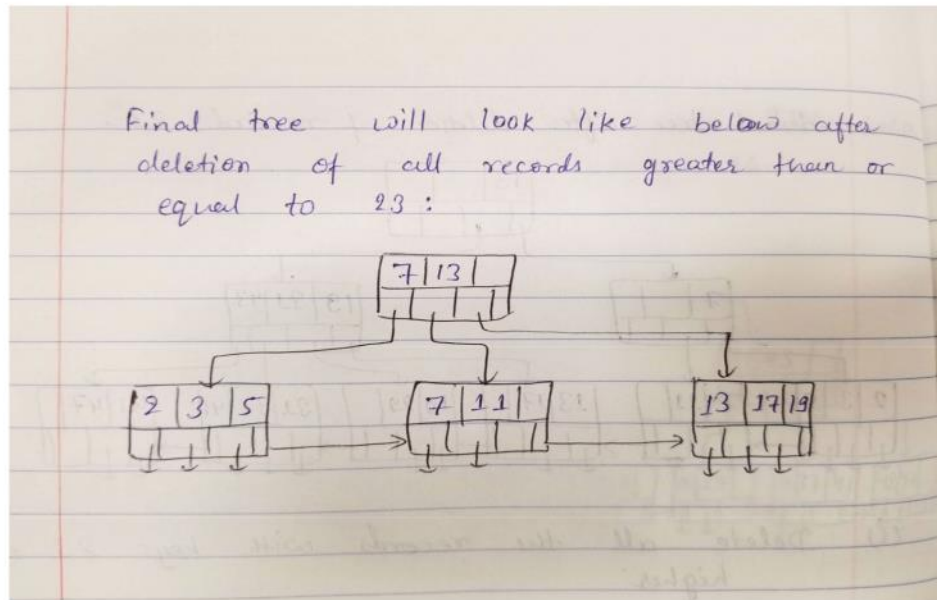 Final tree will look like below after
deletion of all records greater than or
equal to 23:
7 13
2 3 5 7 11 13 17 19